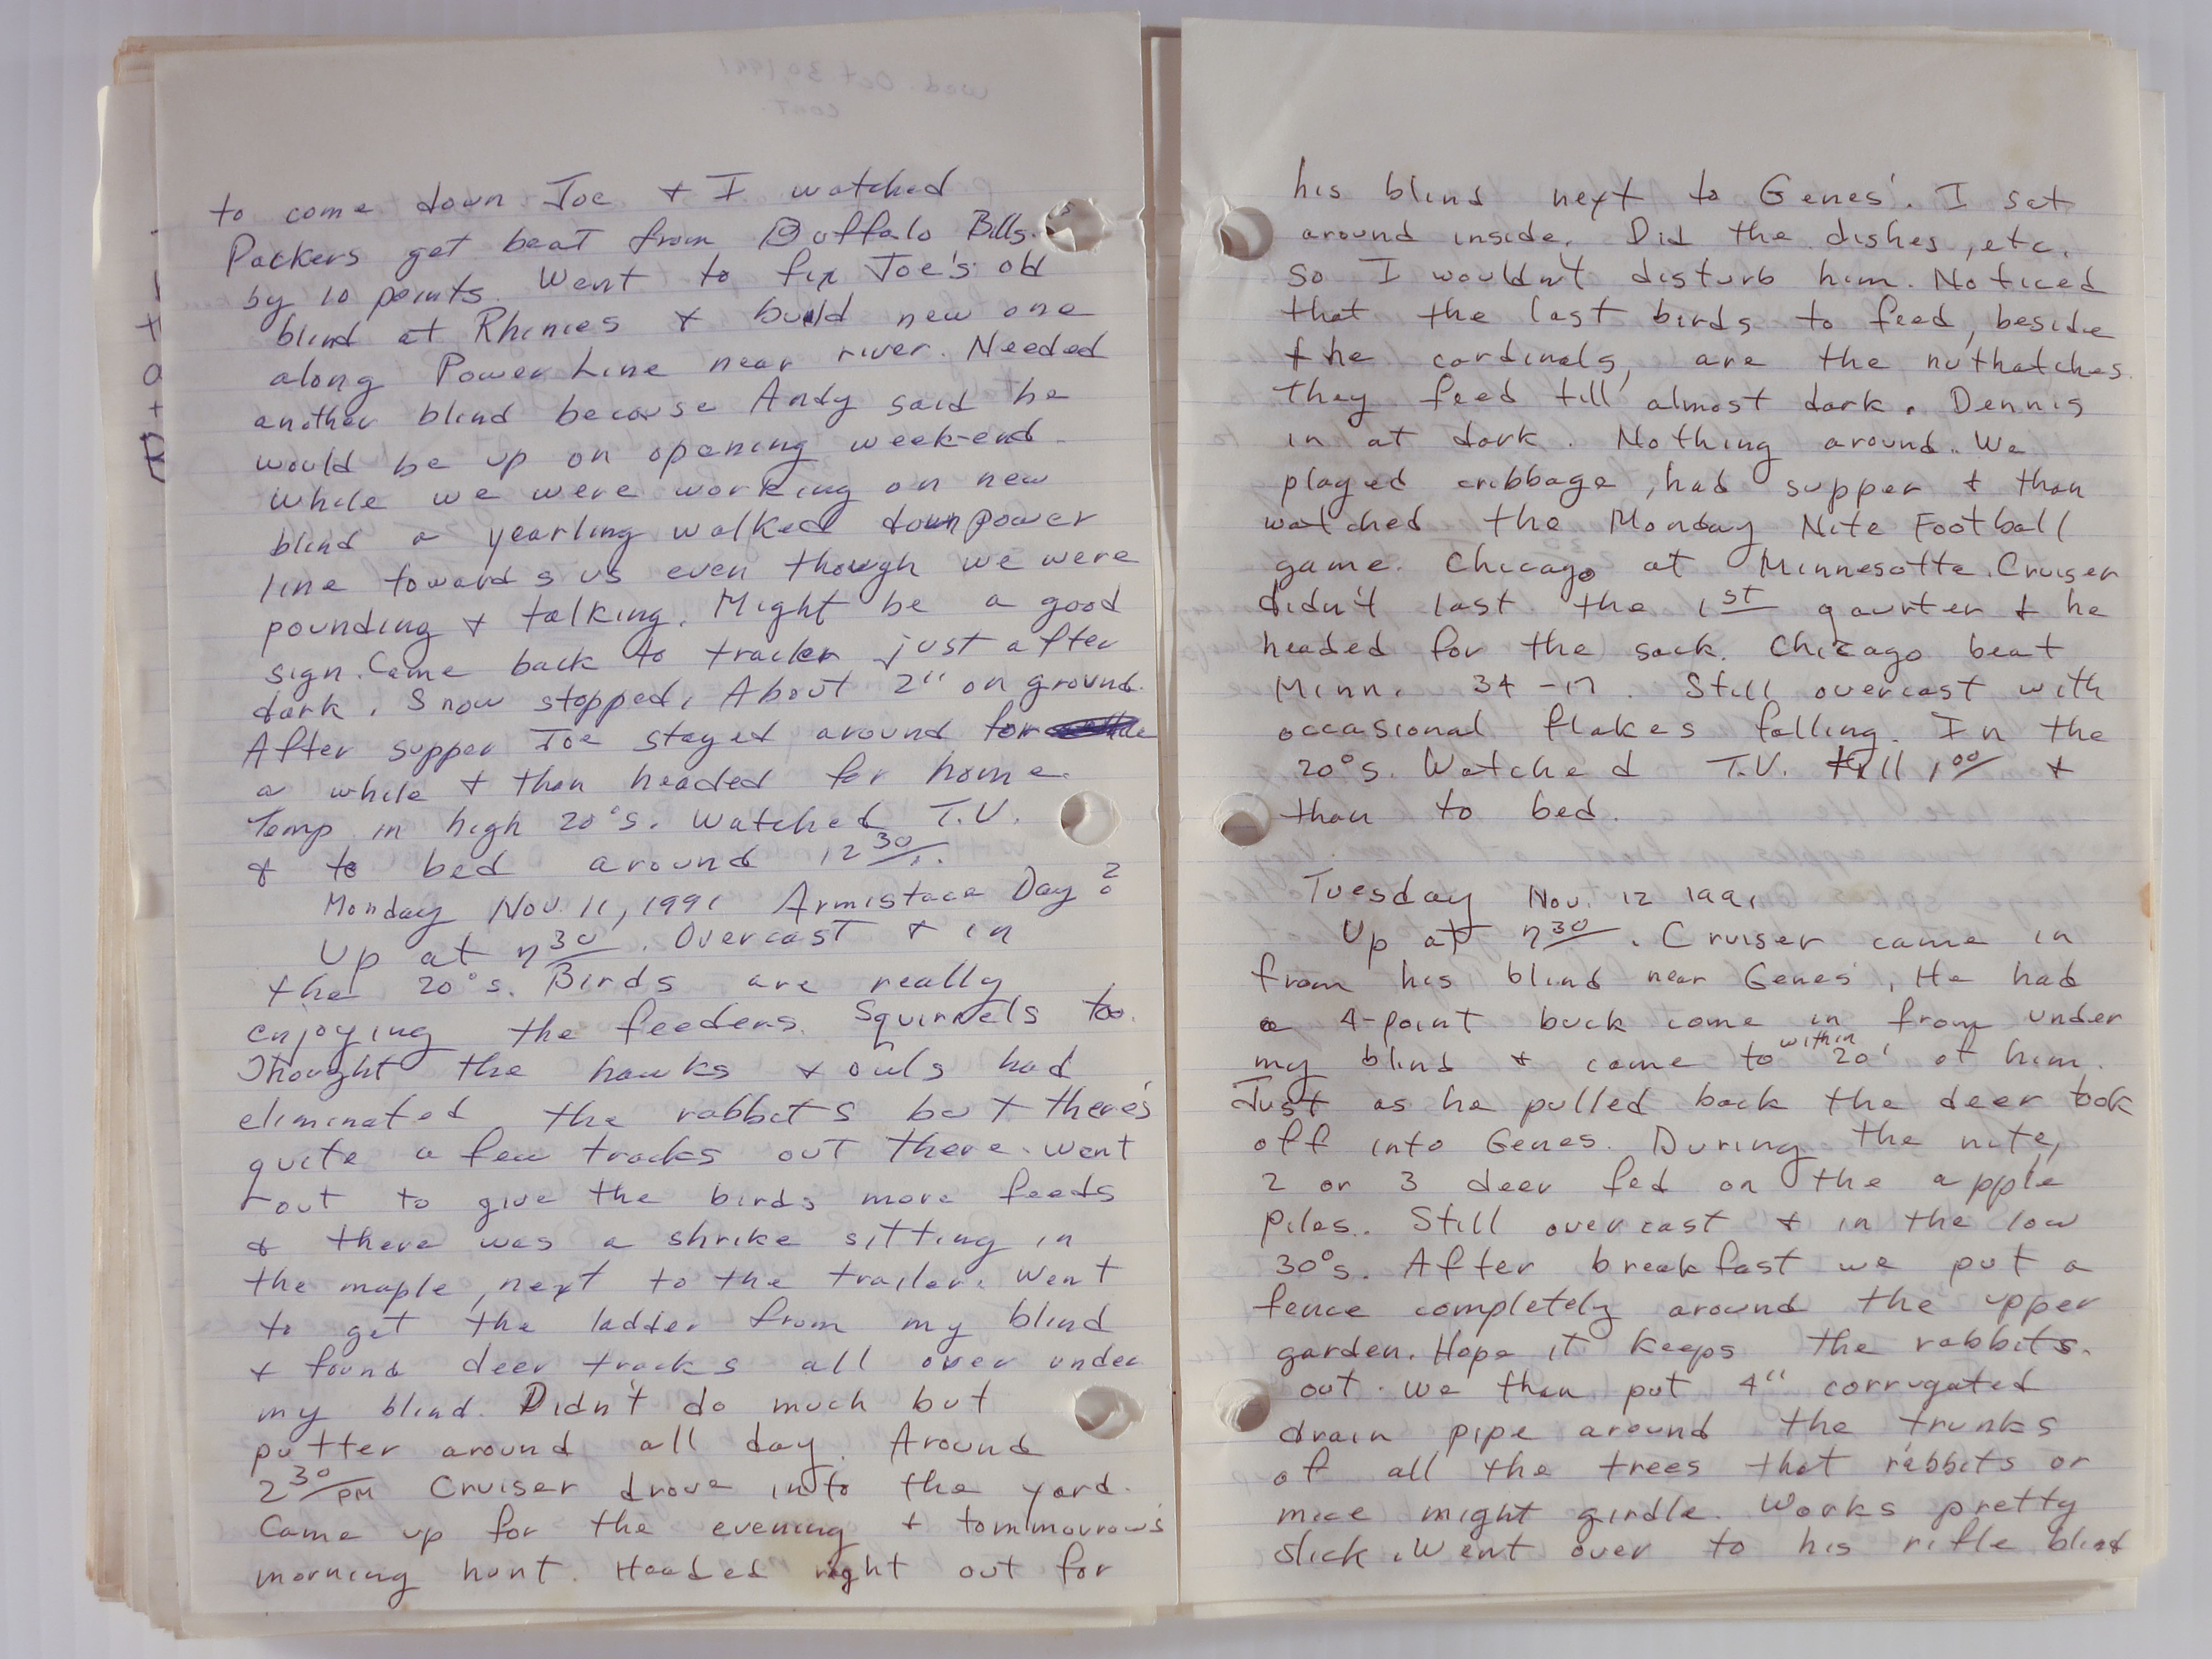 to come down. Joe + I watched
Packers get beat from Buffalo Bills.
by 10 points. Went to fix Joe's old
blind at Rhinies + build new one
along Power Line near river. Needed
another blind because Andy said he
would be up on opening week-end.
While we were working on new
blind a yearling walked down power
line towards us even though we were
pounding + talking. Might be a good
sign. Came back to trailer just after
dark. Snow stopped. About 2" on ground.
After supper Joe stayed around for
a while + than headed for home.
Temp in high 20°s. Watched T.V.
+ to bed around 12 30/.
Monday Nov. 11, 1991 Armistace Day?
Up at 7 30. Overcast + in
the 20°s. Birds are really
enjoying the feeders. Squirrels too.
Thought the hawks + owls had
eliminated the rabbits but there's
quite a few tracks out there. Went
out to give the birds more feeds
+ there was a shrike sitting in
the maple, next to the trailer. Went
to get the ladder from my blind
+ found deer tracks all over under
my blind. Didn't do much but
putter around all day. Around
2 30/PM Cruiser drove into the yard.
Came up for the evening + tommorrow's
morning hunt. Headed right out for
his blind next to Genes'. I sat
around inside. Did the dishes, etc.
so I wouldn't disturb him. Noticed
that the last birds to feed, beside
the cardinals, are the nuthatches.
They feed till almost dark. Dennis
in at dark. Nothing around. We
played cribbage, had supper + than
watched the Monday Nite Football
game. Chicago at Minnesotta. Cruiser
didn't last the 1st qaurter + he
headed for the sack. Chicago beat
Minn. 34-17. Still overcast with
occasional flakes falling. In the
20°s. Watched T.V. till 1 00/ +
than to bed.
Tuesday Nov. 12 1991
Up at 7 30. Cruiser came in
from his blind near Genes'. He had
a 4-point buck come in from under
my blind + came to within 20' of him.
Just as he pulled back the deer took
off into Genes. During the nite,
2 or 3 deer fed on the apple
piles. Still overcast + in the low
30°s. After breakfast we put a
fence completely around the upper
garden. Hope it keeps the rabbits.
out. We than put 4" corrugated
drain pipe around the trunks
of all the trees that rabbits or
mice might girdle. Works pretty
slick. Went over to his rifle blind